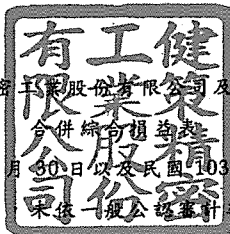 健策精密
工業股份
有限公司
密工業股份有限公司及
合併綜合損益表
月30日以及民國103
未依一般公認審計